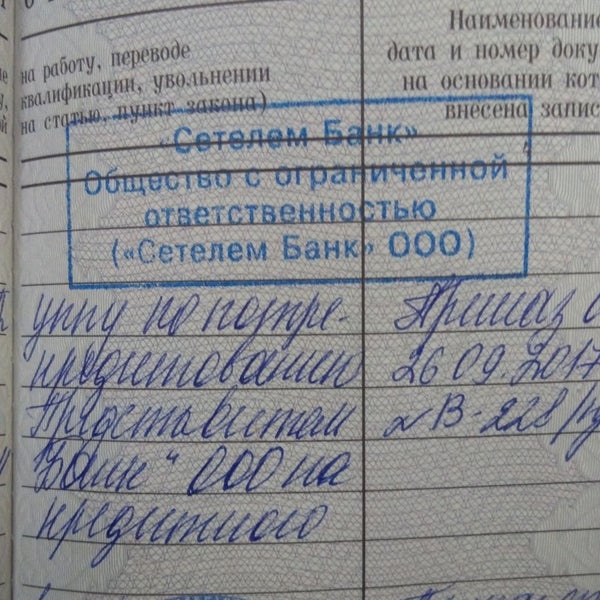 Наименование
на работу, переводе
дата и номер доку
квалификации, увольнении
на основании кот
на статью, пункт закона)
внесена запис
«Сетелем Банк»
Общество с ограниченной
ответственностью
(«Сетелем Банк» ООО)
уппу по потре- Приказ
кредитованию 26.09.2017
Представителем
Банк" ООО на
кредитного